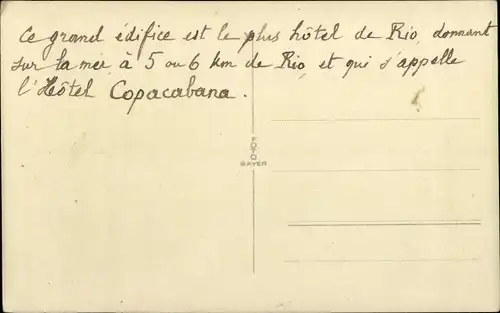 Ce grand édifice est le plus hôtel de Rio, donnant
sur la mer à 5 ou 6 km de Rio, et qui s'appelle
l'Hôtel Copacabana.
FOTO
BAYER